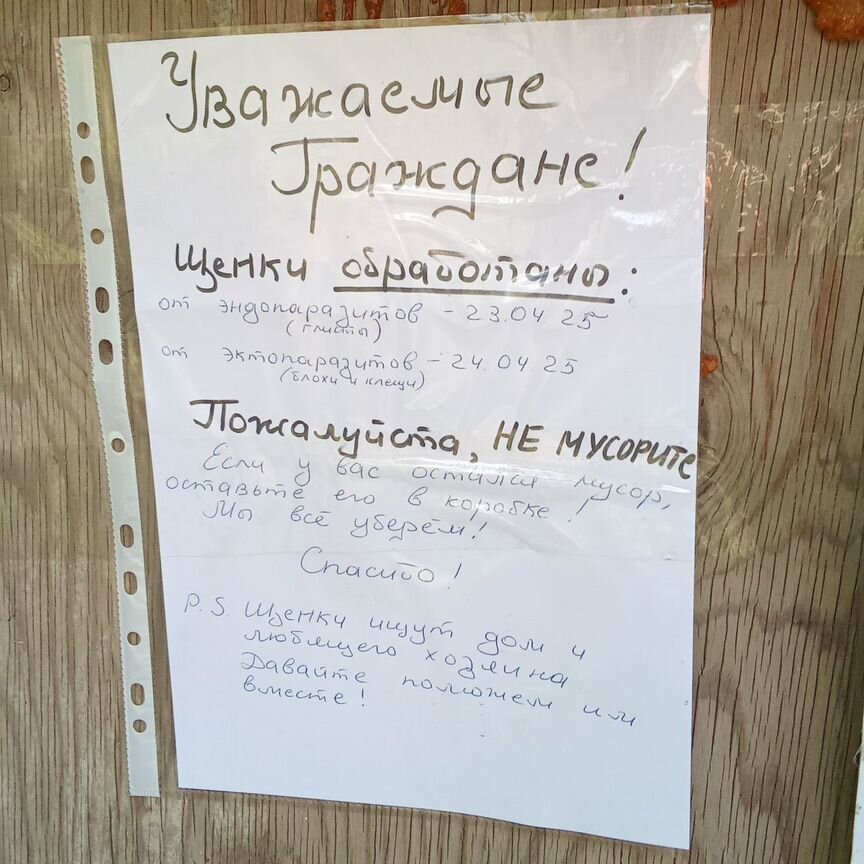 Уважаемые
Граждане!
Щенки обработаны:
от эндопаразитов - 23.04 25
(глисты)
от эктопаразитов - 24.04.25
(блохи и клещи)
Пожалуйста, НЕ МУСОРИТЕ
Если у вас остался мусор,
оставьте его в коробке!
Мы всё уберём!
Спасибо!
P.S. Щенки ищут дом и
любящего хозяина
Давайте поможем им
вместе!